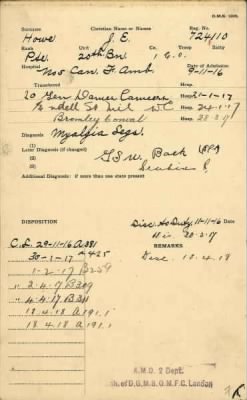 D.M.S. 1300.
Surname Christian Name or Names Reg. No.
Howe J. E. 724110
Rank Unit Co. Troop Batty.
Pte. 20th Bn. 1 C.O.
Hospital Date of Admission
No 5 Can. F. Amb. 9-11-16
Transferred Hosp.
20 Gen Dannes Camiers Hosp. 21-1-17
St Mil W.C. Hosp. 24-1-17
Bromley Convl Hosp. 28-3-17
Diagnosis Myalgia Legs.
(1) Later Diagnosis (if changed) G S W Back
(2) Scabies
Additional Diagnosis: if more than one state present
DISPOSITION Disc. to Duty 11-11-16 DATE
Dis 20-3-17
C.L. 29-11-16 A381 REMARKS
30-1-17 A425 Disc. 18.4.18
1-2-17 B259
2-4-17 B309
4-4-17 B311
18.4.18 A191.1
18.4.18 A191.1
A.M.D. 2 Dept.
of D.G.M.S. O.M.F.C. London